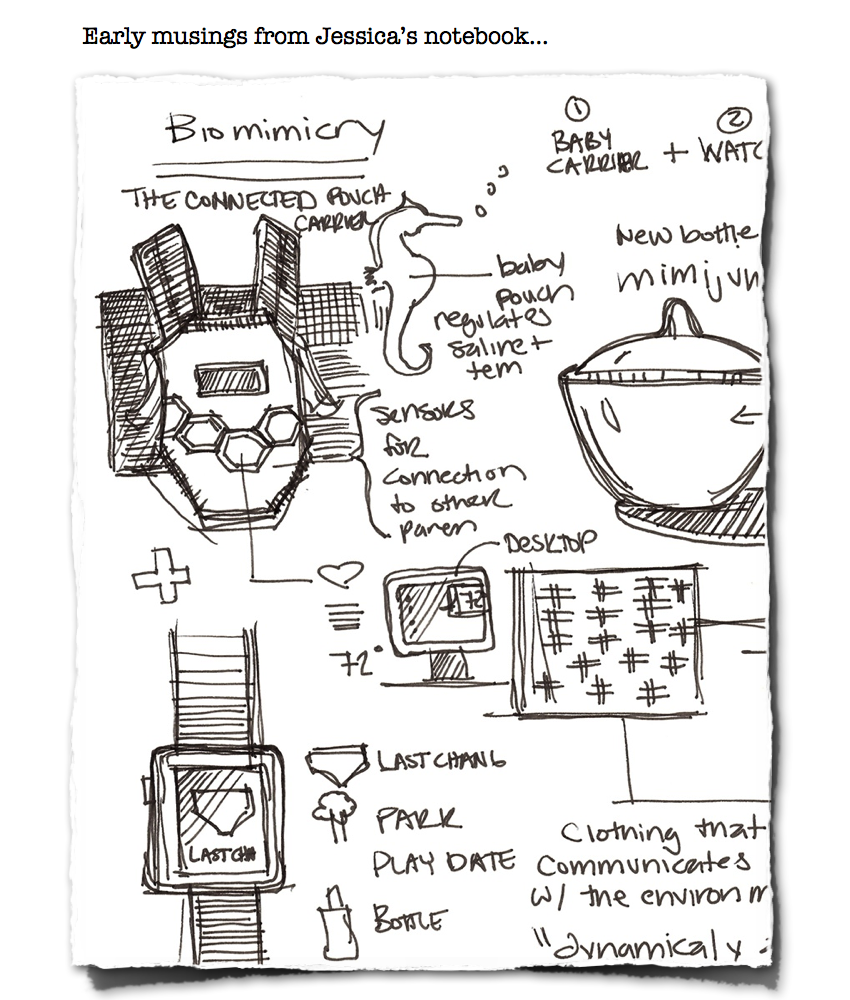 Early musings from Jessica's notebook...
Biomimicry
① ②
BABY
CARRIER + WATC
THE CONNECTED POUCH
CARRIER
New bottle
baby
pouch
regulates
saline +
tem
sensors
for
connection
to other
paren
DESKTOP
72
72°
LAST CHANG
LAST CHA
PARK
PLAY DATE
BOTTLE
Clothing that
communicates
w/ the environm
"dynamicaly